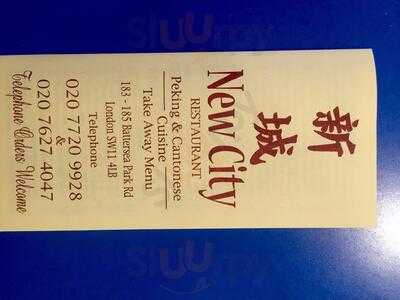 新城
New City
RESTAURANT
Peking & Cantonese
Cuisine
Take Away Menu
183 - 185 Battersea Park Rd
London SW11 4LB
Telephone
020 7720 9928
&
020 7627 4047
Telephone Orders Welcome